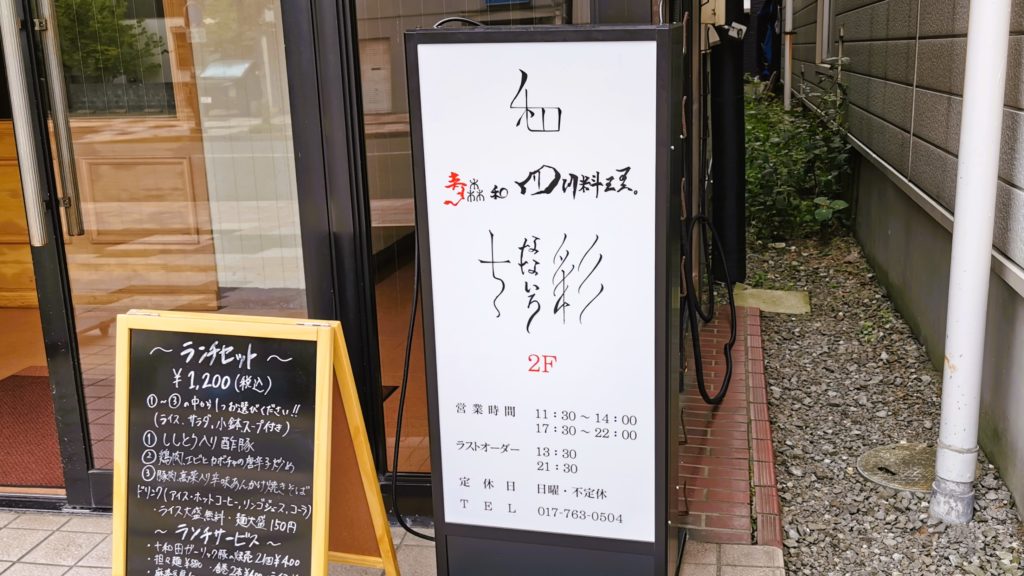 和
青森 和 四川料理。
七彩
なないろ
2F
営業時間 11:30～14:00
17:30～22:00
ラストオーダー 13:30
21:30
定休日 日曜・不定休
TEL 017-763-0504
～ランチセット～
¥1,200(税込)
①～③の中から1つお選びください!!
(ライス、サラダ、小鉢、スープ付き)
① ししとう入り酢豚
② 鶏肉、エビとカボチャの唐辛子炒め
③ 豚肉高菜入り辛味あんかけ焼きそば
ドリンク(アイス・ホットコーヒー、リンゴジュース、コーラ)
ライス大盛無料・麺大盛150円
～ランチサービス～
・十和田ガーリック豚の焼売 2個¥400
・担々麺¥880